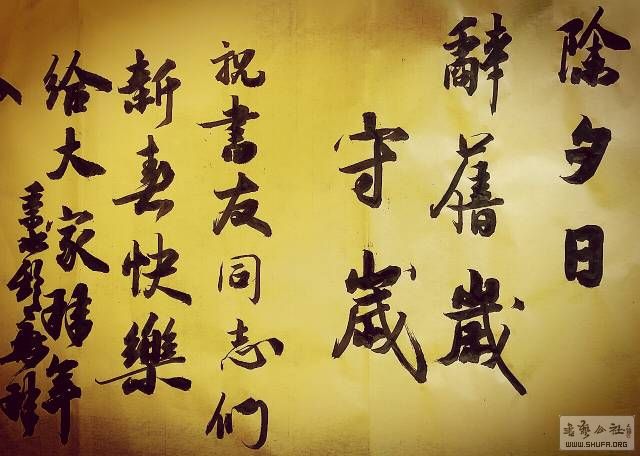 除夕日
辭舊歲
守歲
祝書友同志們
新春快樂
給大家拜年
書法公社
WWW.SHUFA.ORG